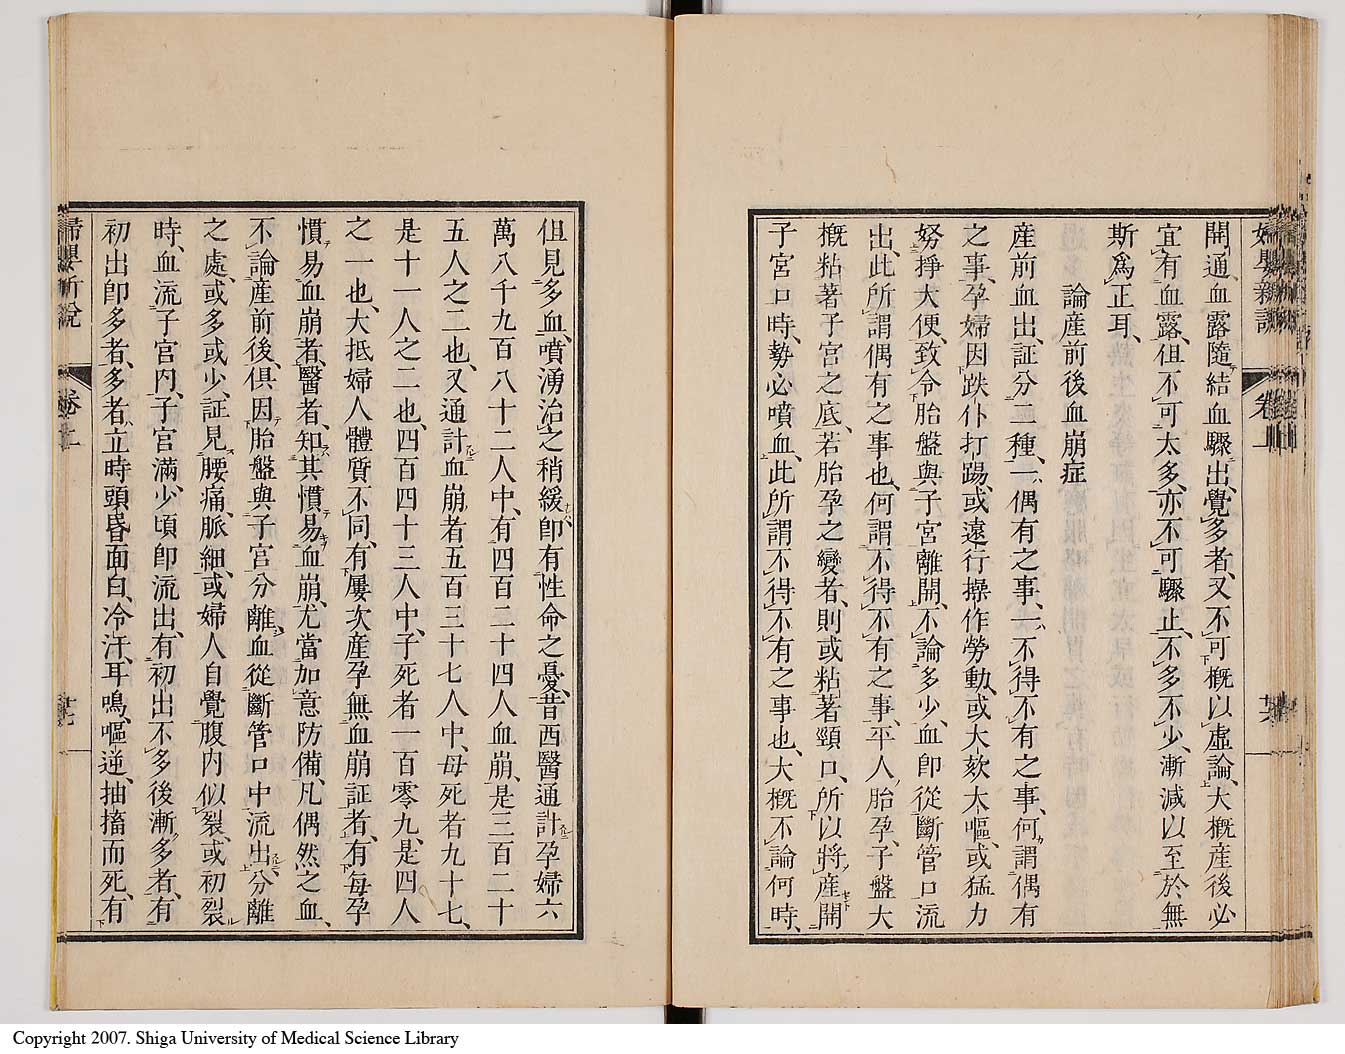 婦嬰新説 卷上 廿六
開通、血露隨結血驟出、覺多者、又不可概以虛論、大概產後必
宜有血露、但不可太多、亦不可驟止、不多不少、漸減以至於無、
斯為正耳、
論產前後血崩症
產前血出、証分二種、一偶有之事、一不得不有之事、何謂偶有
之事、孕婦因跌仆打踢、或遠行操作勞動、或大欬大嘔、或猛力
努掙大便、致令胎盤與子宮離開、不論多少、血即從斷管口流
出、此所謂偶有之事也、何謂不得不有之事、平人胎孕、子盤大
概粘著子宮之底、若胎孕之變者、則或粘著頸口、所以將產開
子宮口時、勢必噴血、此所謂不得不有之事也、大概不論何時、
但見多血、噴湧治之稍緩、即有性命之憂、昔西醫通計孕婦六
萬八千九百八十二人中、有四百二十四人血崩、是三百二十
五人之二也、又通計血崩者五百三十七人中、母死者九十七、
是十一人之二也、四百四十三人中、子死者一百零九、是四人
之一也、大抵婦人體質不同、有屢次產孕無血崩証者、有每孕
慣易血崩者、醫者知其慣易血崩、尤當加意防備、凡偶然之血、
不論產前後、俱因胎盤與子宮分離、血從斷管口中流出、分離
之處、或多或少、証見腰痛、脈細、或婦人自覺腹內似裂、或初裂
時、血流子宮內、子宮滿、少頃即流出、有初出不多後漸多者、有
初出即多者、多者立時頭昏面白、冷汗、耳鳴、嘔逆、抽搐而死、有
婦嬰新説 卷上 廿七
Copyright 2007. Shiga University of Medical Science Library